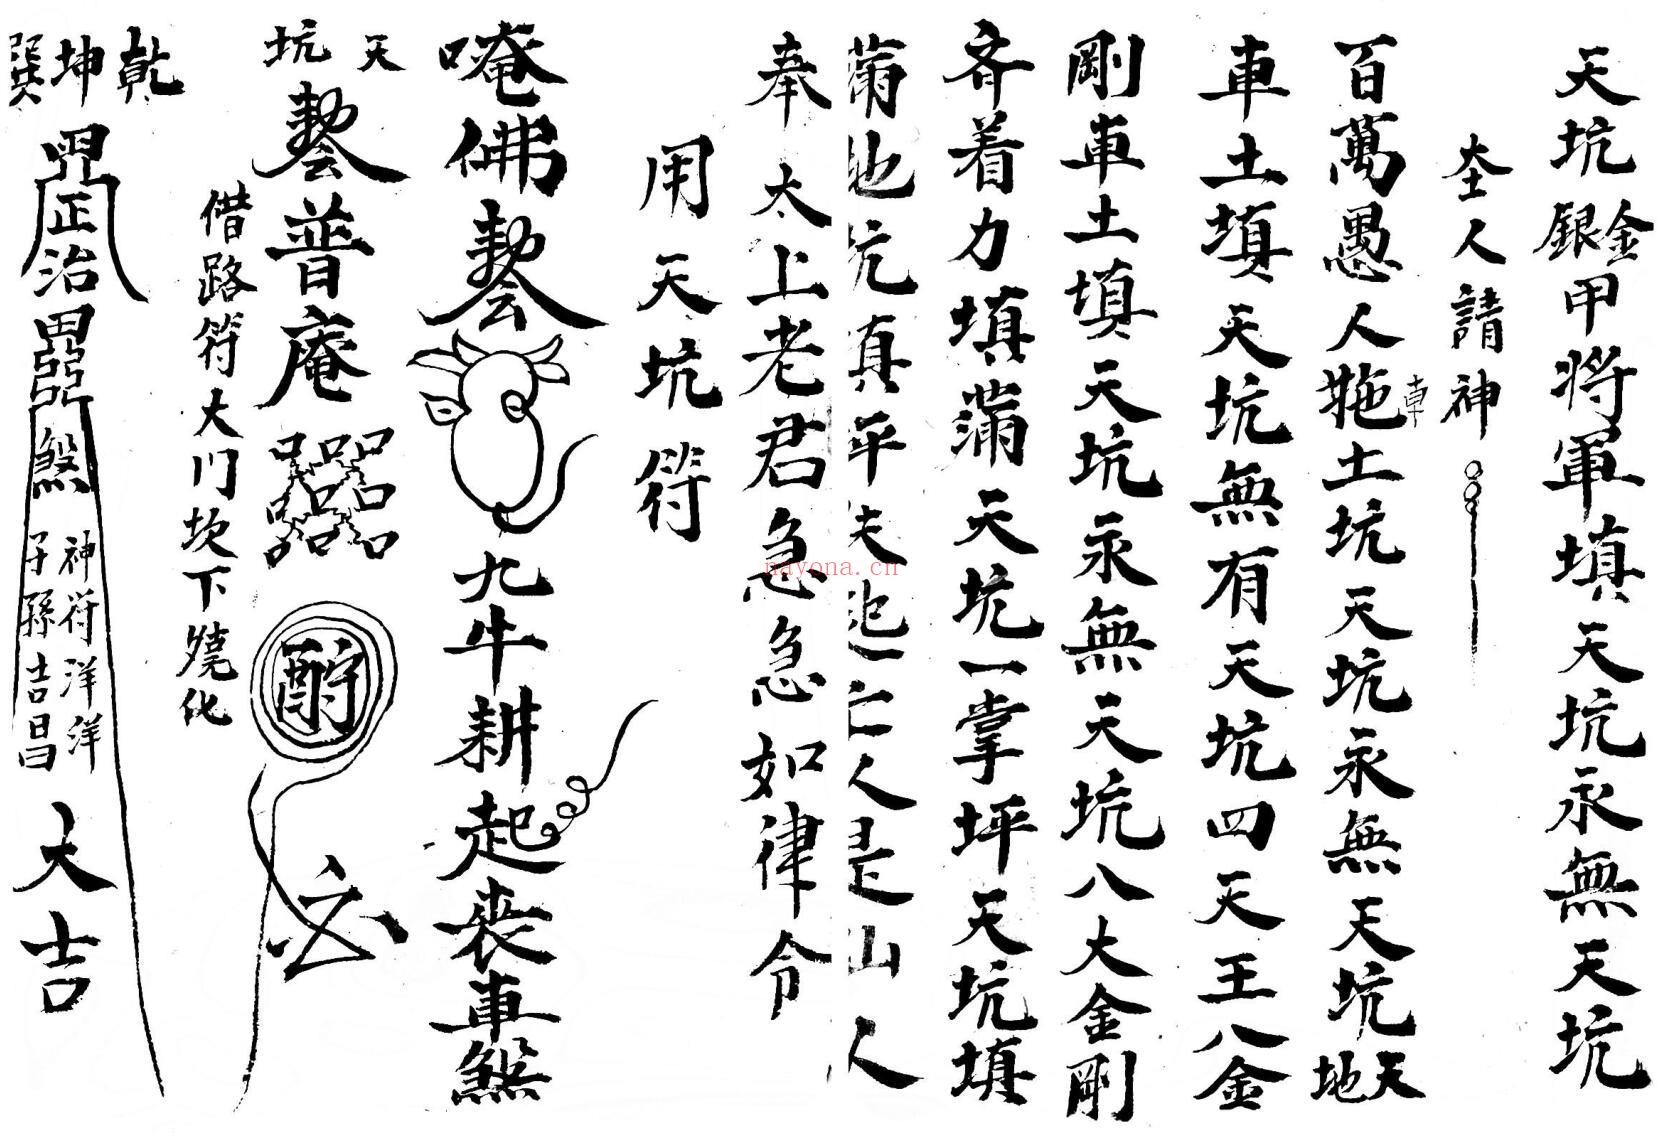 天坑金銀甲将軍填天坑永無天坑
夲人請神
百萬愚人拖車土坑天坑永無天坑天地
車土填天坑無有天坑四天王八金
剛車土填天坑永無天坑八大金剛
齐着力填满天坑一掌坪天坑填
满地坑真平
亡人是山人
奉太上老君急急如律令
用天坑符
唵佛
九牛耕起丧車煞
天坑
普庵
借路符大门坎下燒化
乾坤巽
正治
煞
神符洋洋
子孫吉昌
大吉
nayona.cn